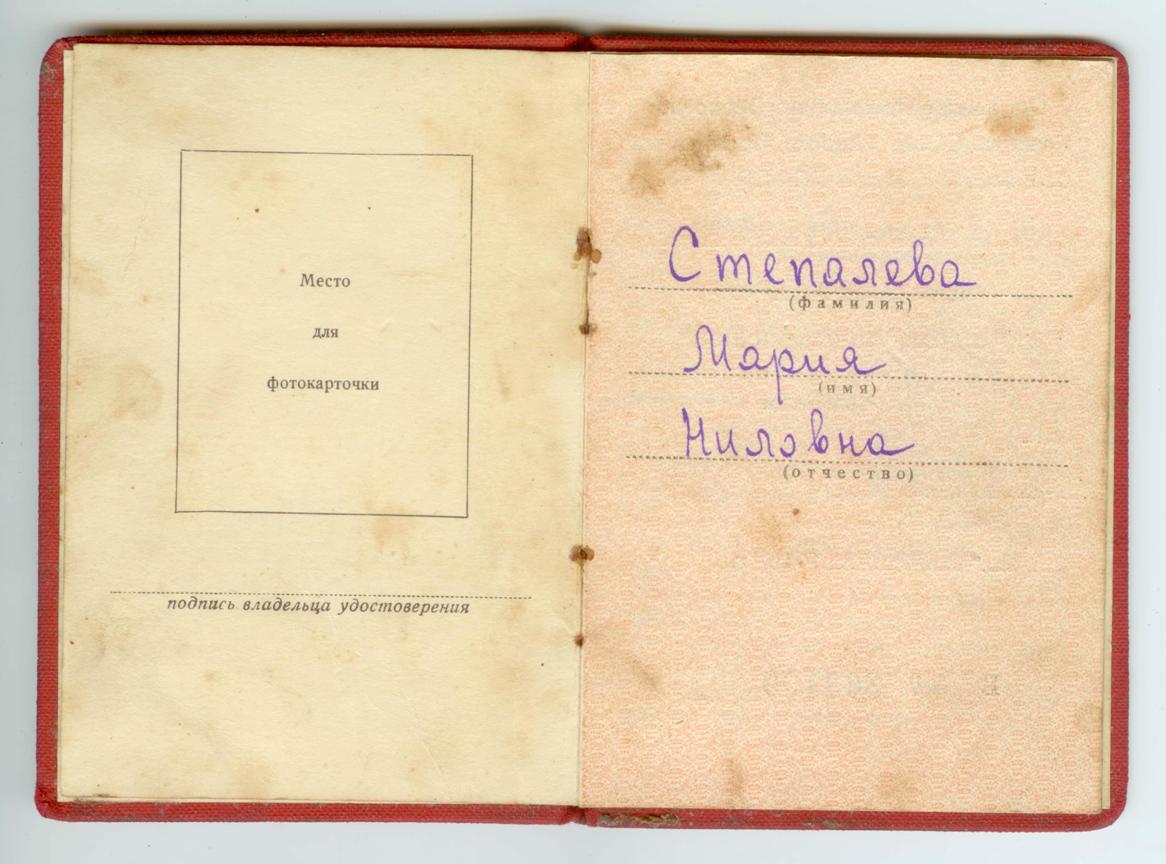 Место
для
фотокарточки
подпись владельца удостоверения
Степалева
(фамилия)
Мария
(имя)
Ниловна
(отчество)